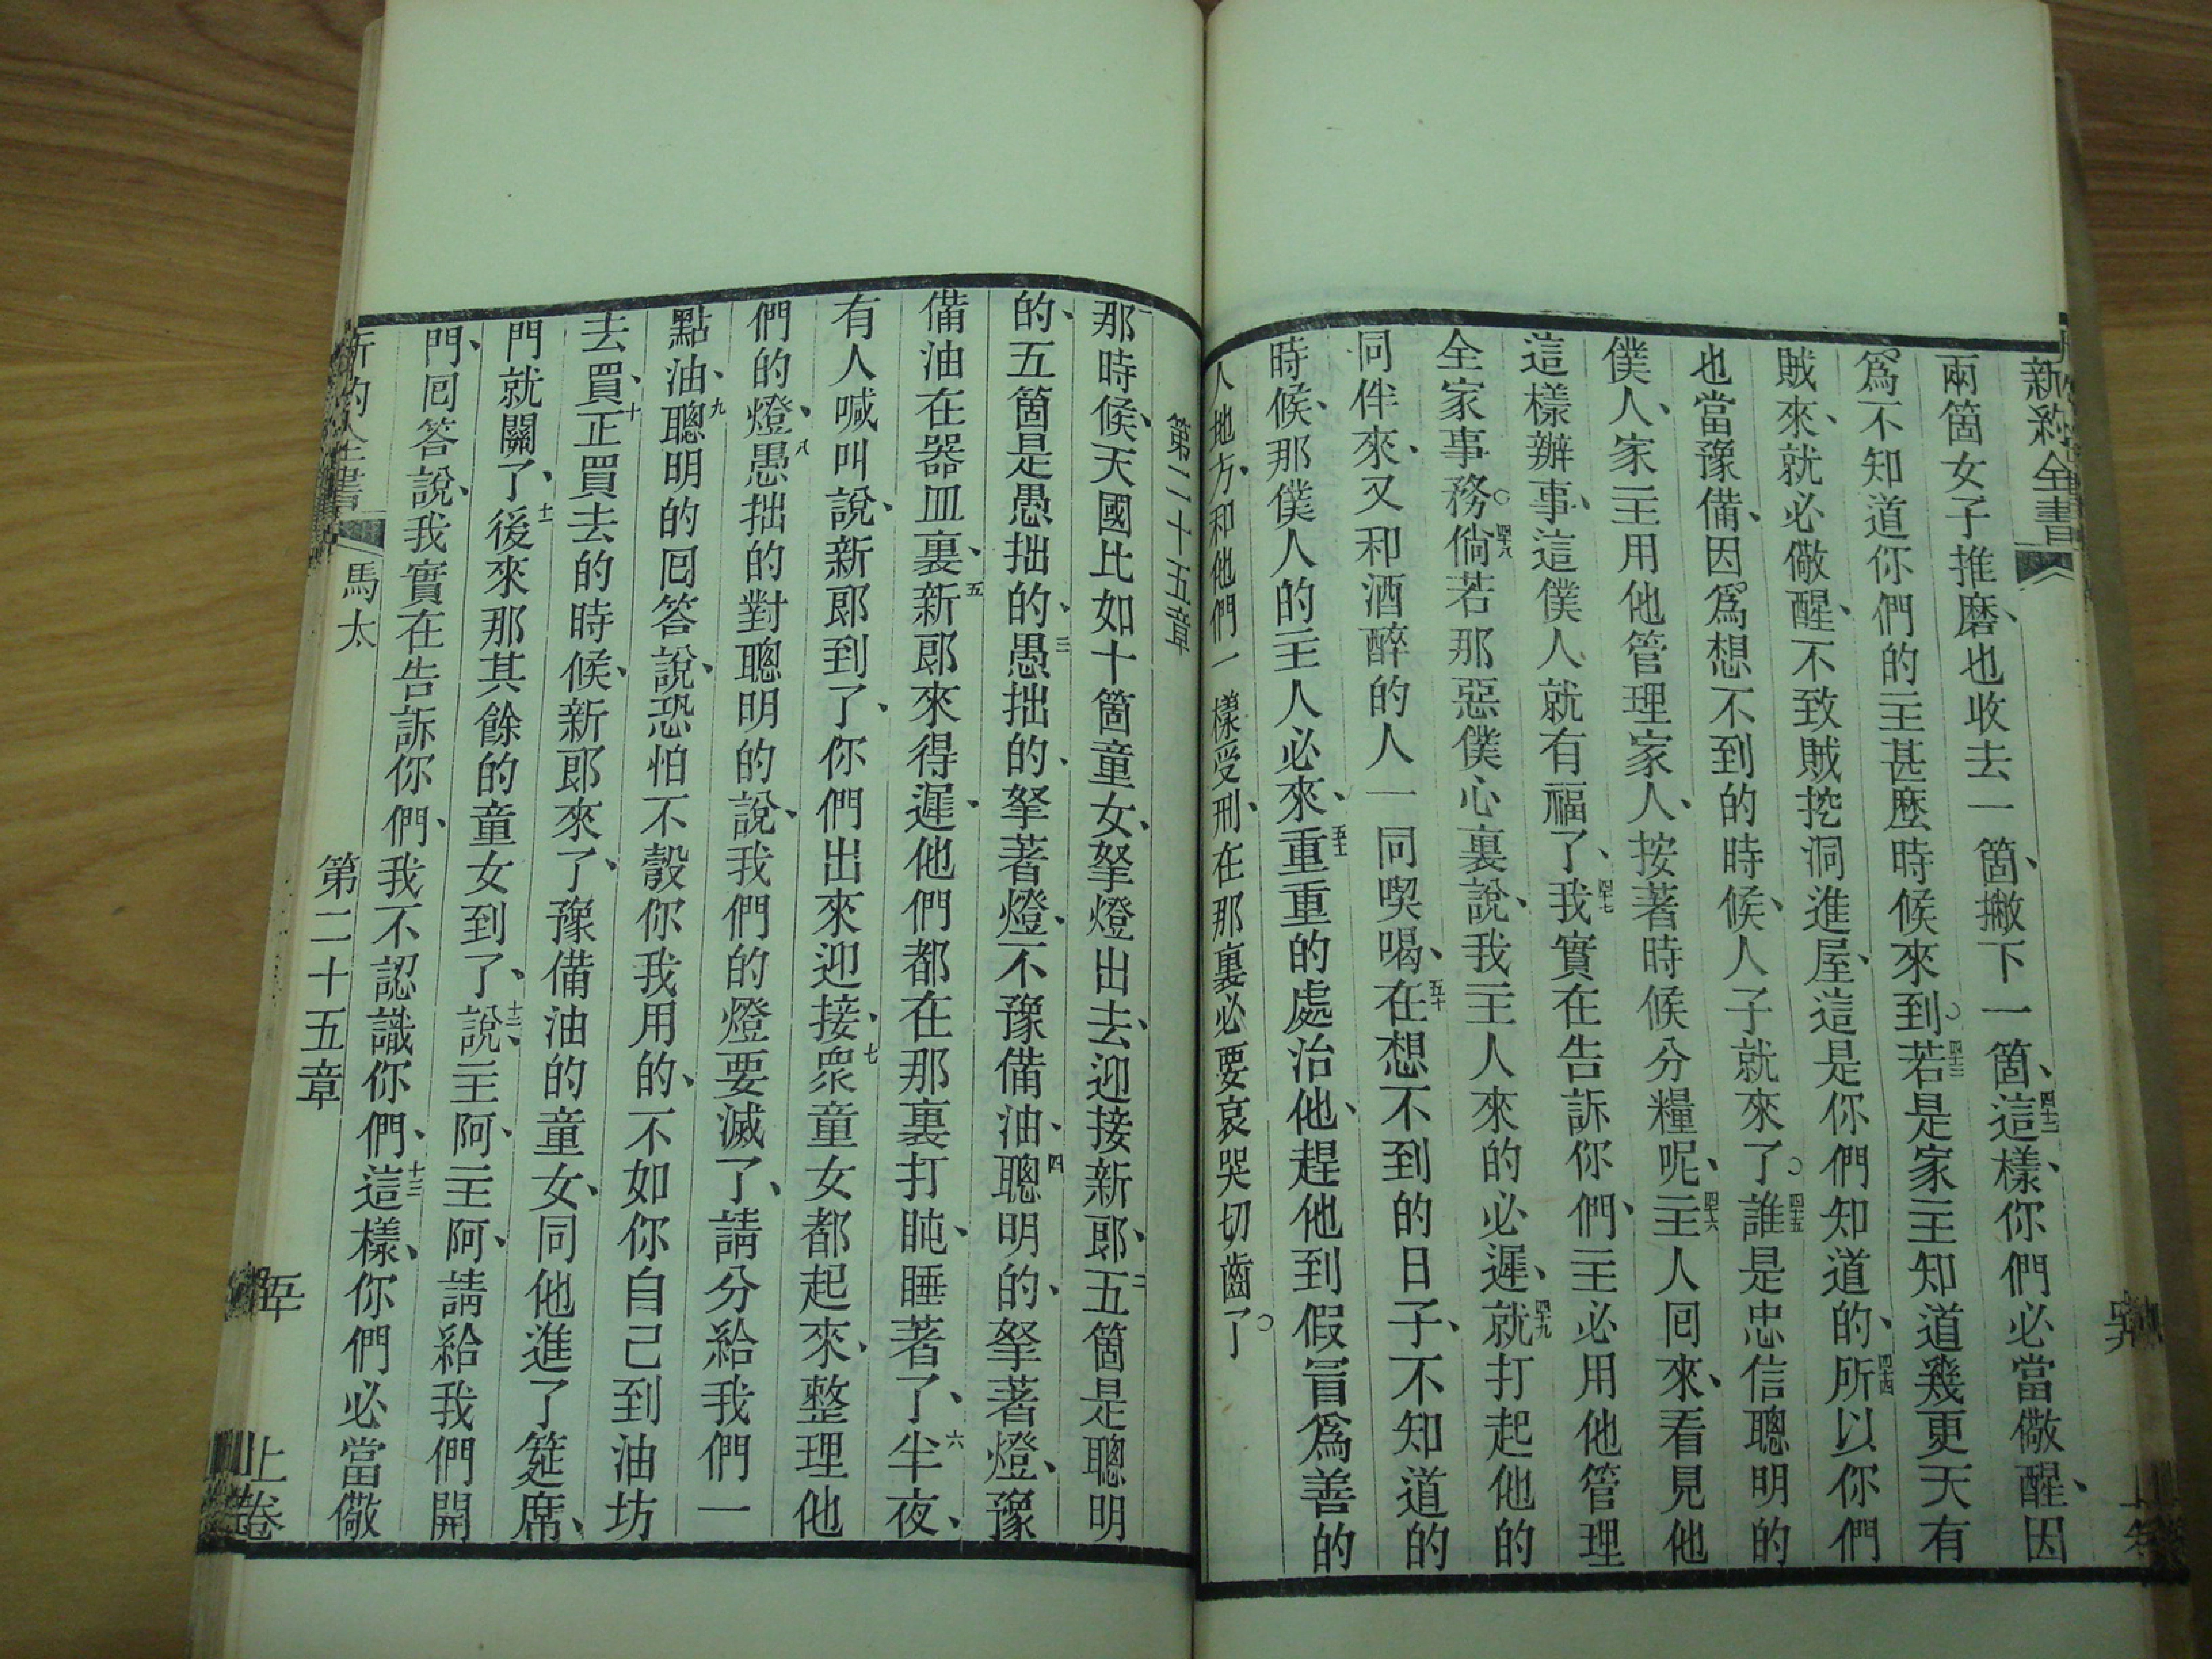 新約全書
兩箇女子推磨、也收去一箇、撇下一箇、四十二這樣、你們必當儆醒、因
爲不知道你們的主甚麽時候來到。四十三若是家主知道幾更天有
賊來、就必儆醒、不致賊挖洞進屋、這是你們知道的、四十四所以你們
也當豫備、因爲想不到的時候、人子就來了。四十五誰是忠信聰明的
僕人、家主用他管理家人、按著時候分糧呢、四十六主人囘來、看見他
這樣辦事、這僕人就有福了、四十七我實在告訴你們、主必用他管理
全家事務。四十八倘若那惡僕心裏說、我主人來的必遲、四十九就打起他的
同伴來、又和酒醉的人一同喫喝、五十在想不到的日子、不知道的
時候、那僕人的主人必來、五十一重重的處治他、趕他到假冒爲善的
人地方、和他們一樣受刑、在那裏必要哀哭切齒了。
第二十五章
那時候、天國比如十箇童女、拏燈出去、迎接新郎、二五箇是聰明
的、五箇是愚拙的、三愚拙的、拏著燈、不豫備油、四聰明的、拏著燈、豫
備油在器皿裏、五新郎來得遲、他們都在那裏打盹、睡著了、六半夜、
有人喊叫說、新郎到了、你們出來迎接、七衆童女都起來、整理他
們的燈、八愚拙的對聰明的說、我們的燈要滅了、請分給我們一
點油、九聰明的囘答說、恐怕不彀你我用的、不如你自己到油坊
去買、十正買去的時候、新郎來了、豫備油的童女、同他進了筵席、
門就關了、十一後來那其餘的童女到了、說、十二主阿、主阿、請給我們開
門、囘答說、我實在告訴你們、我不認識你們、十三這樣、你們必當儆
馬太
第二十五章
上卷